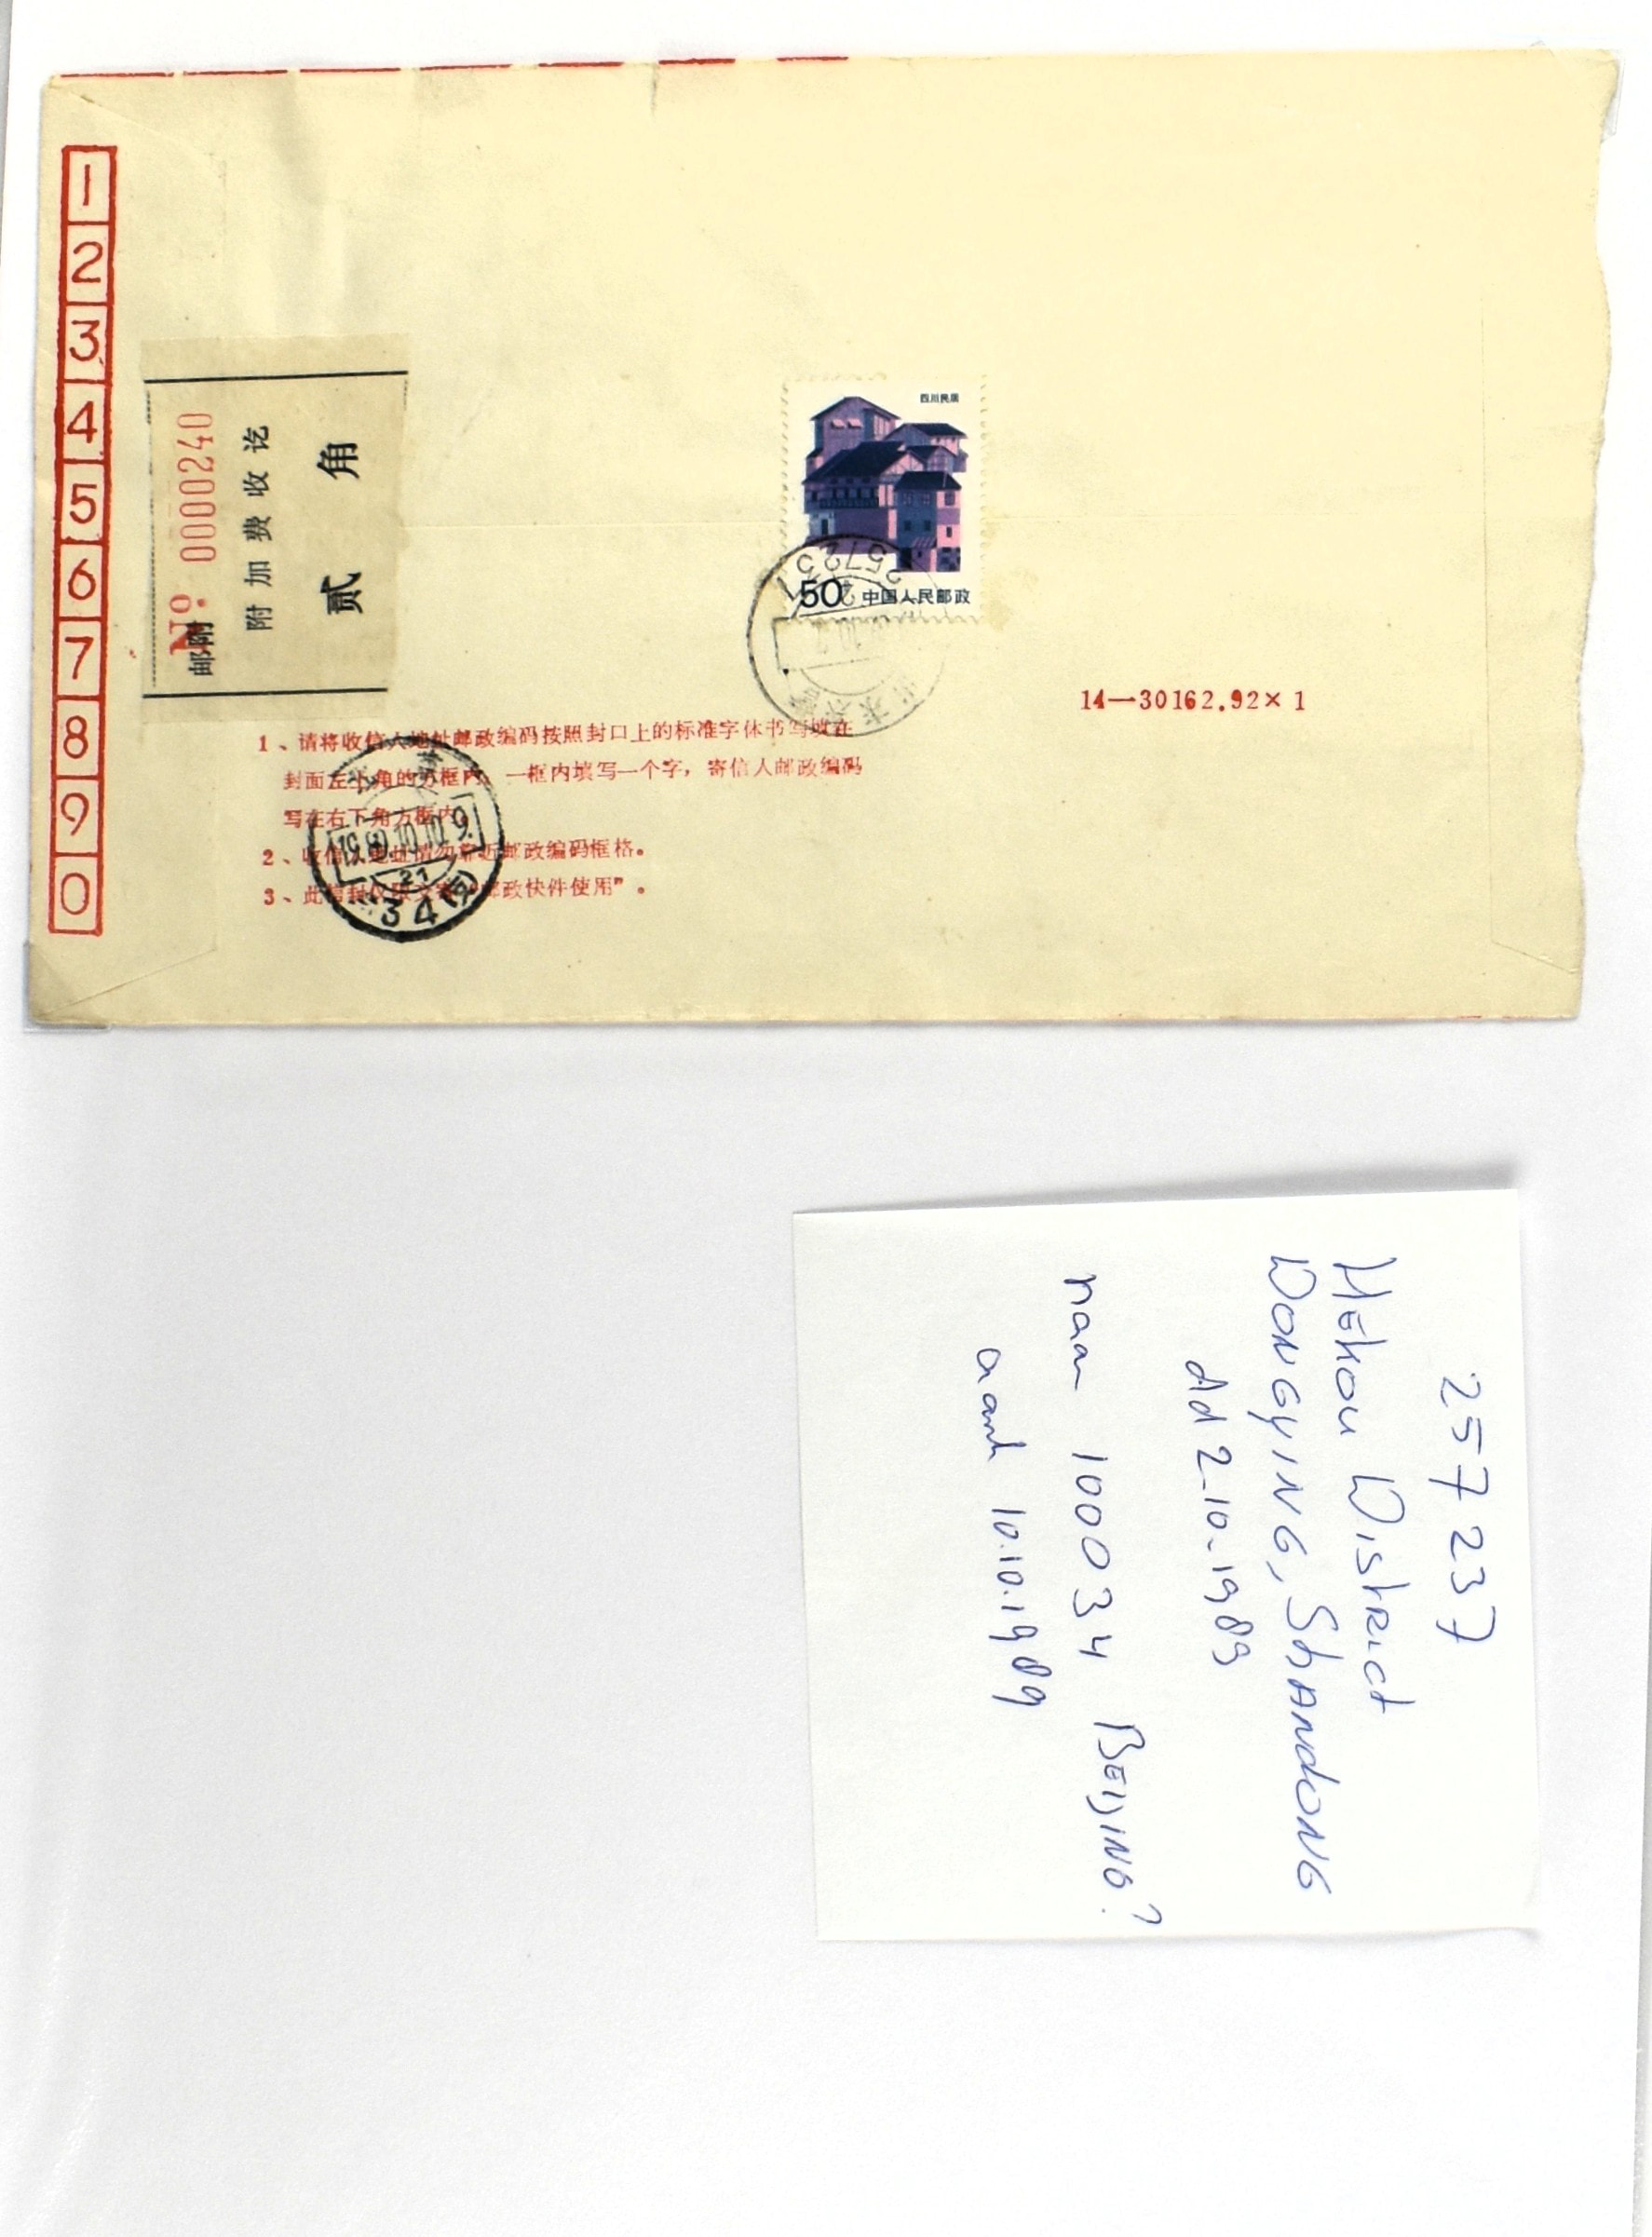 1
2
3
4
5
6
7
8
9
0
№ 0000240
邮附
附加费收讫
贰角
四川民居
50 中国人民邮政
25723
14—30162.92×1
1、请将收信人地址邮政编码按照封口上的标准字体书写填在
封面左上角的方框内，一框内填写一个字，寄信人邮政编码
写在右下角方框内。
2、收信人地址请勿靠近邮政编码框格。
3、此信封仅限交寄“邮政快件使用”。
21
34
257237
Hékou District
DONGYING, SHANDONG
dd 2-10-1989
naar 100034 BEIJING?
aank 10.10.1989